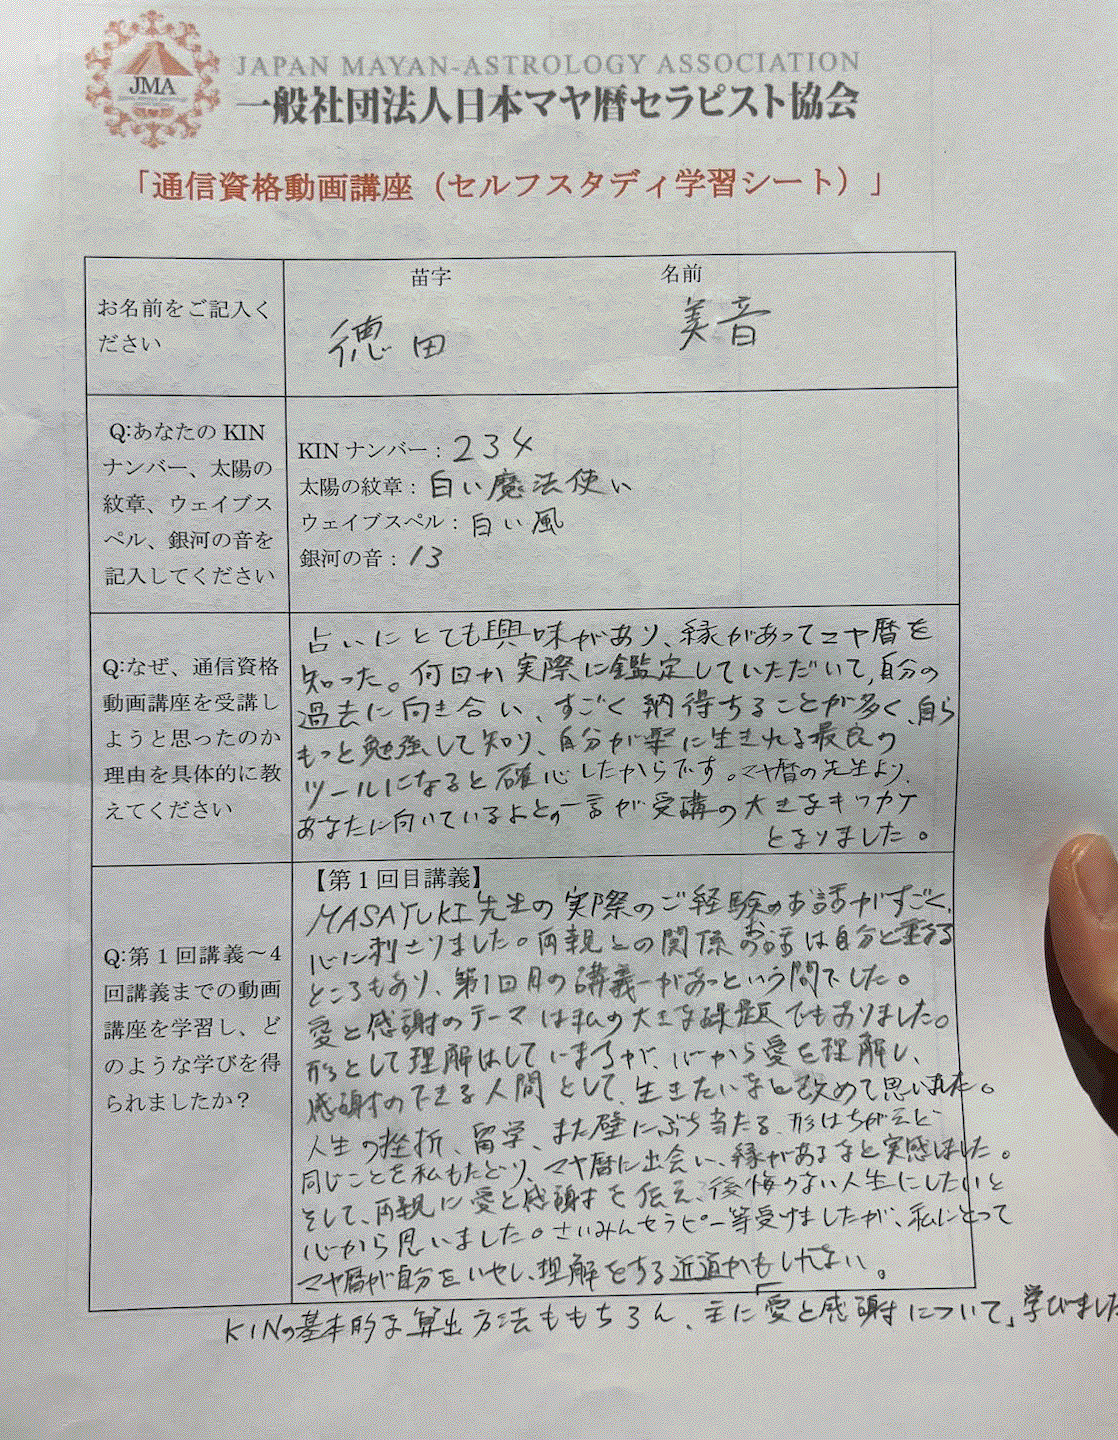 JMA
JAPAN MAYAN-ASTROLOGY ASSOCIATION
一般社団法人日本マヤ暦セラピスト協会
「通信資格動画講座（セルフスタディ学習シート）」
お名前をご記入く
ださい
苗字 名前
徳田 美音
Q:あなたの KIN
ナンバー、太陽の
紋章、ウェイブス
ペル、銀河の音を
記入してください
KIN ナンバー：234
太陽の紋章：白い魔法使い
ウェイブスペル：白い風
銀河の音：13
Q:なぜ、通信資格
動画講座を受講し
ようと思ったのか
理由を具体的に教
えてください
占いにとても興味があり、縁があってマヤ暦を
知った。何回か実際に鑑定していただいて、自分の
過去に向き合い、すごく納得することが多く、自ら
もっと勉強して知り、自分が楽に生きれる最良の
ツールになると確心したからです。マヤ暦の先生より、
あなたに向いているよとの一言が受講の大きなキッカケ
となりました。
Q:第 1 回講義～4
回講義までの動画
講座を学習し、ど
のような学びを得
られましたか？
【第 1 回目講義】
MASAYUKI先生の実際のご経験のお話がすごく、
心に刺さりました。両親との関係のお話は自分と重なる
ところもあり、第1回目の講義があっという間でした。
愛と感謝のテーマは私の大きな課題でもありました。
形として理解はしていますが、心から愛を理解し、
感謝のできる人間として、生きたいなと改めて思いました。
人生の挫折、留学、また壁にぶち当たる、形はちがえど
同じことを私もたどり、マヤ暦に出会い、縁があるなと実感しました。
そして、両親に愛と感謝を伝え、後悔のない人生にしたいと
心から思いました。さいみんセラピー等受けましたが、私にとって
マヤ暦が自分をいやし、理解をする近道かもしれない。
KINの基本的な算出方法ももちろん、主に「愛と感謝について」学びました